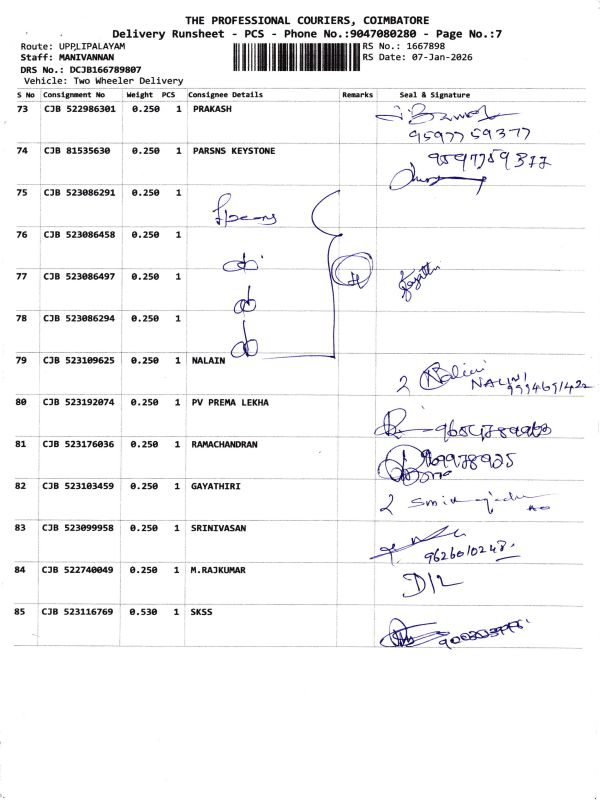 THE PROFESSIONAL COURIERS, COIMBATORE
Delivery Runsheet - PCS - Phone No.:9047080280 - Page No.:7
Route: UPPLIPALAYAM RS No.: 1667898
Staff: MANIVANNAN RS Date: 07-Jan-2026
DRS No.: DCJB166789807
Vehicle: Two Wheeler Delivery
S No Consignment No Weight PCS Consignee Details Remarks Seal & Signature
73 CJB 522986301 0.250 1 PRAKASH
9597759377
74 CJB 81535630 0.250 1 PARSNS KEYSTONE 9597759377
75 CJB 523086291 0.250 1
76 CJB 523086458 0.250 1
77 CJB 523086497 0.250 1
78 CJB 523086294 0.250 1
79 CJB 523109625 0.250 1 NALAIN
Nalini
NALINI
80 CJB 523192074 0.250 1 PV PREMA LEKHA
81 CJB 523176036 0.250 1 RAMACHANDRAN
82 CJB 523103459 0.250 1 GAYATHIRI
83 CJB 523099958 0.250 1 SRINIVASAN
9626010248
84 CJB 522740049 0.250 1 M.RAJKUMAR D/L
85 CJB 523116769 0.530 1 SKSS